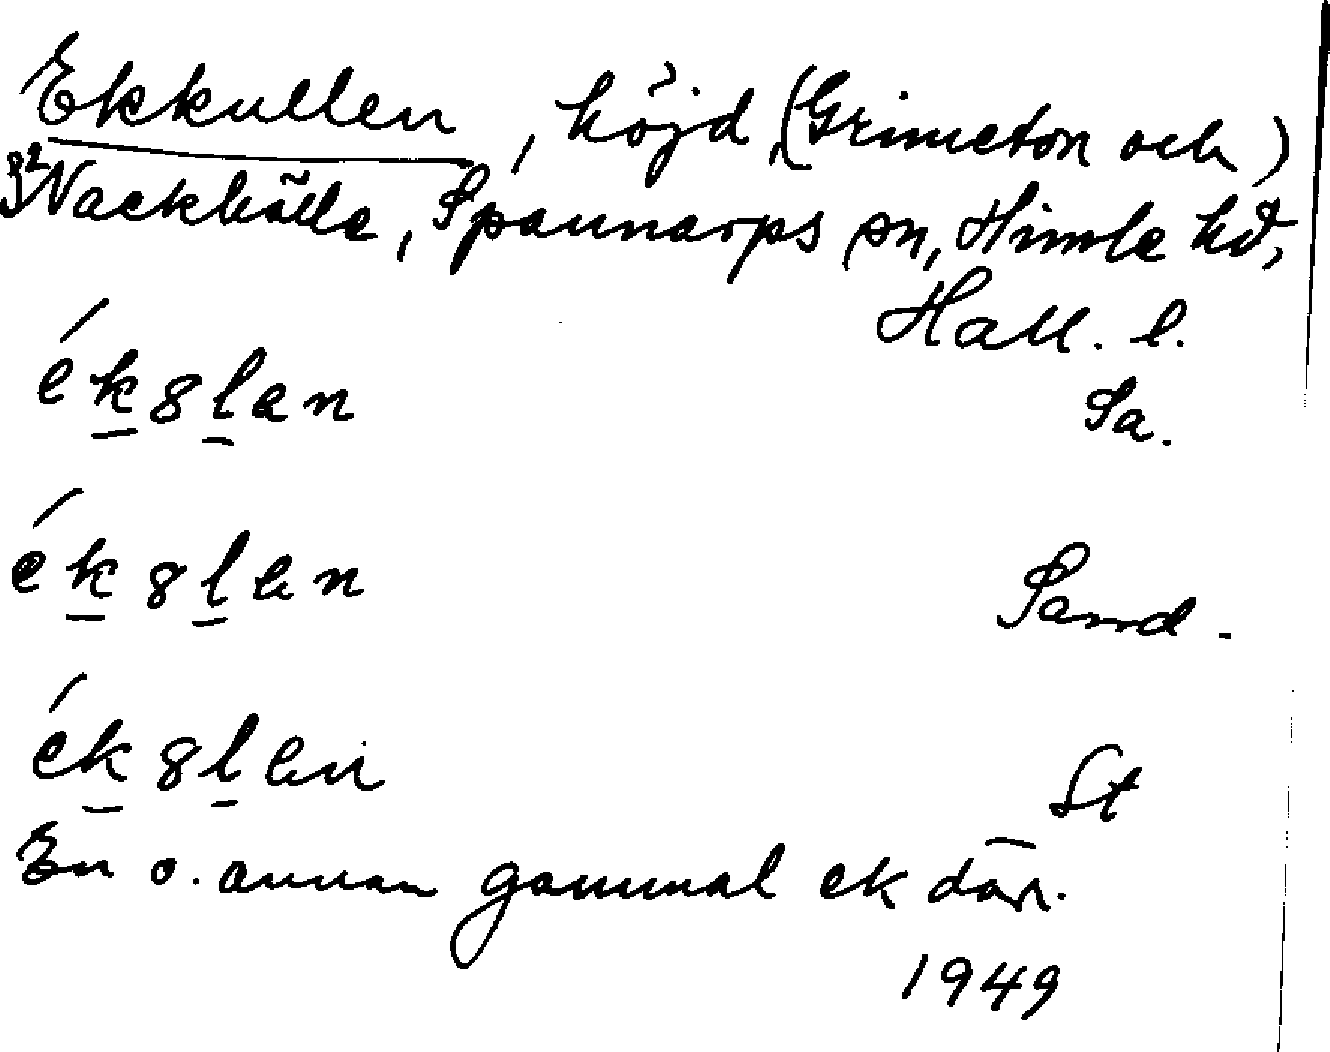 Ekkullen, höjd, (Grimeton och)
3² Nackhälle, Spannarps sn, Himle hd,
Hall. l.
ék8lan Sa.
ék8len Sand.
ék8len St
En o. annan gammal ek där.
1949